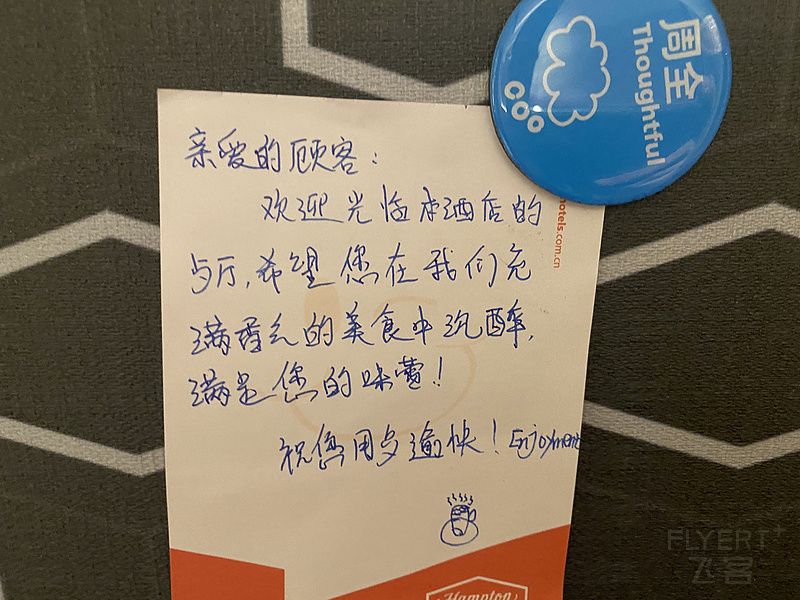 周全
Thoughtful
亲爱的顾客：
欢迎光临本酒店的
歺厅，希望您在我们充
满香气的美食中沉醉，
满足您的味蕾！
祝您用歺逾快！Enjoyment
hotels.com.cn
Hampton
FLYERT+
飞客